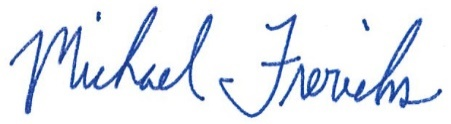 Michael Frerichs